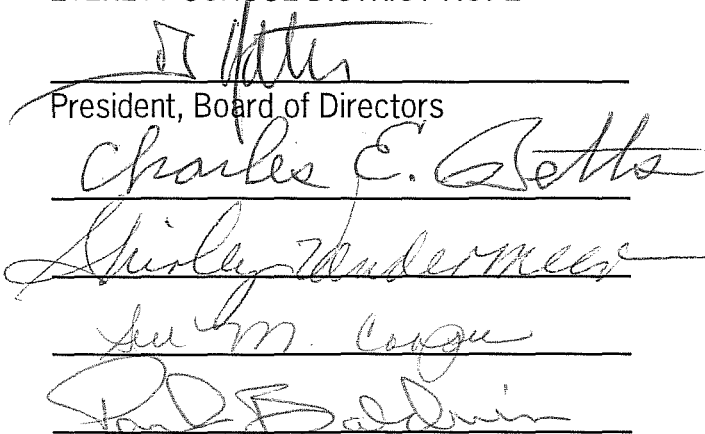 President, Board of Directors
Charles E. Betts
Shirley Vandermeer
Sue M. Cooper
Paul Baldwin